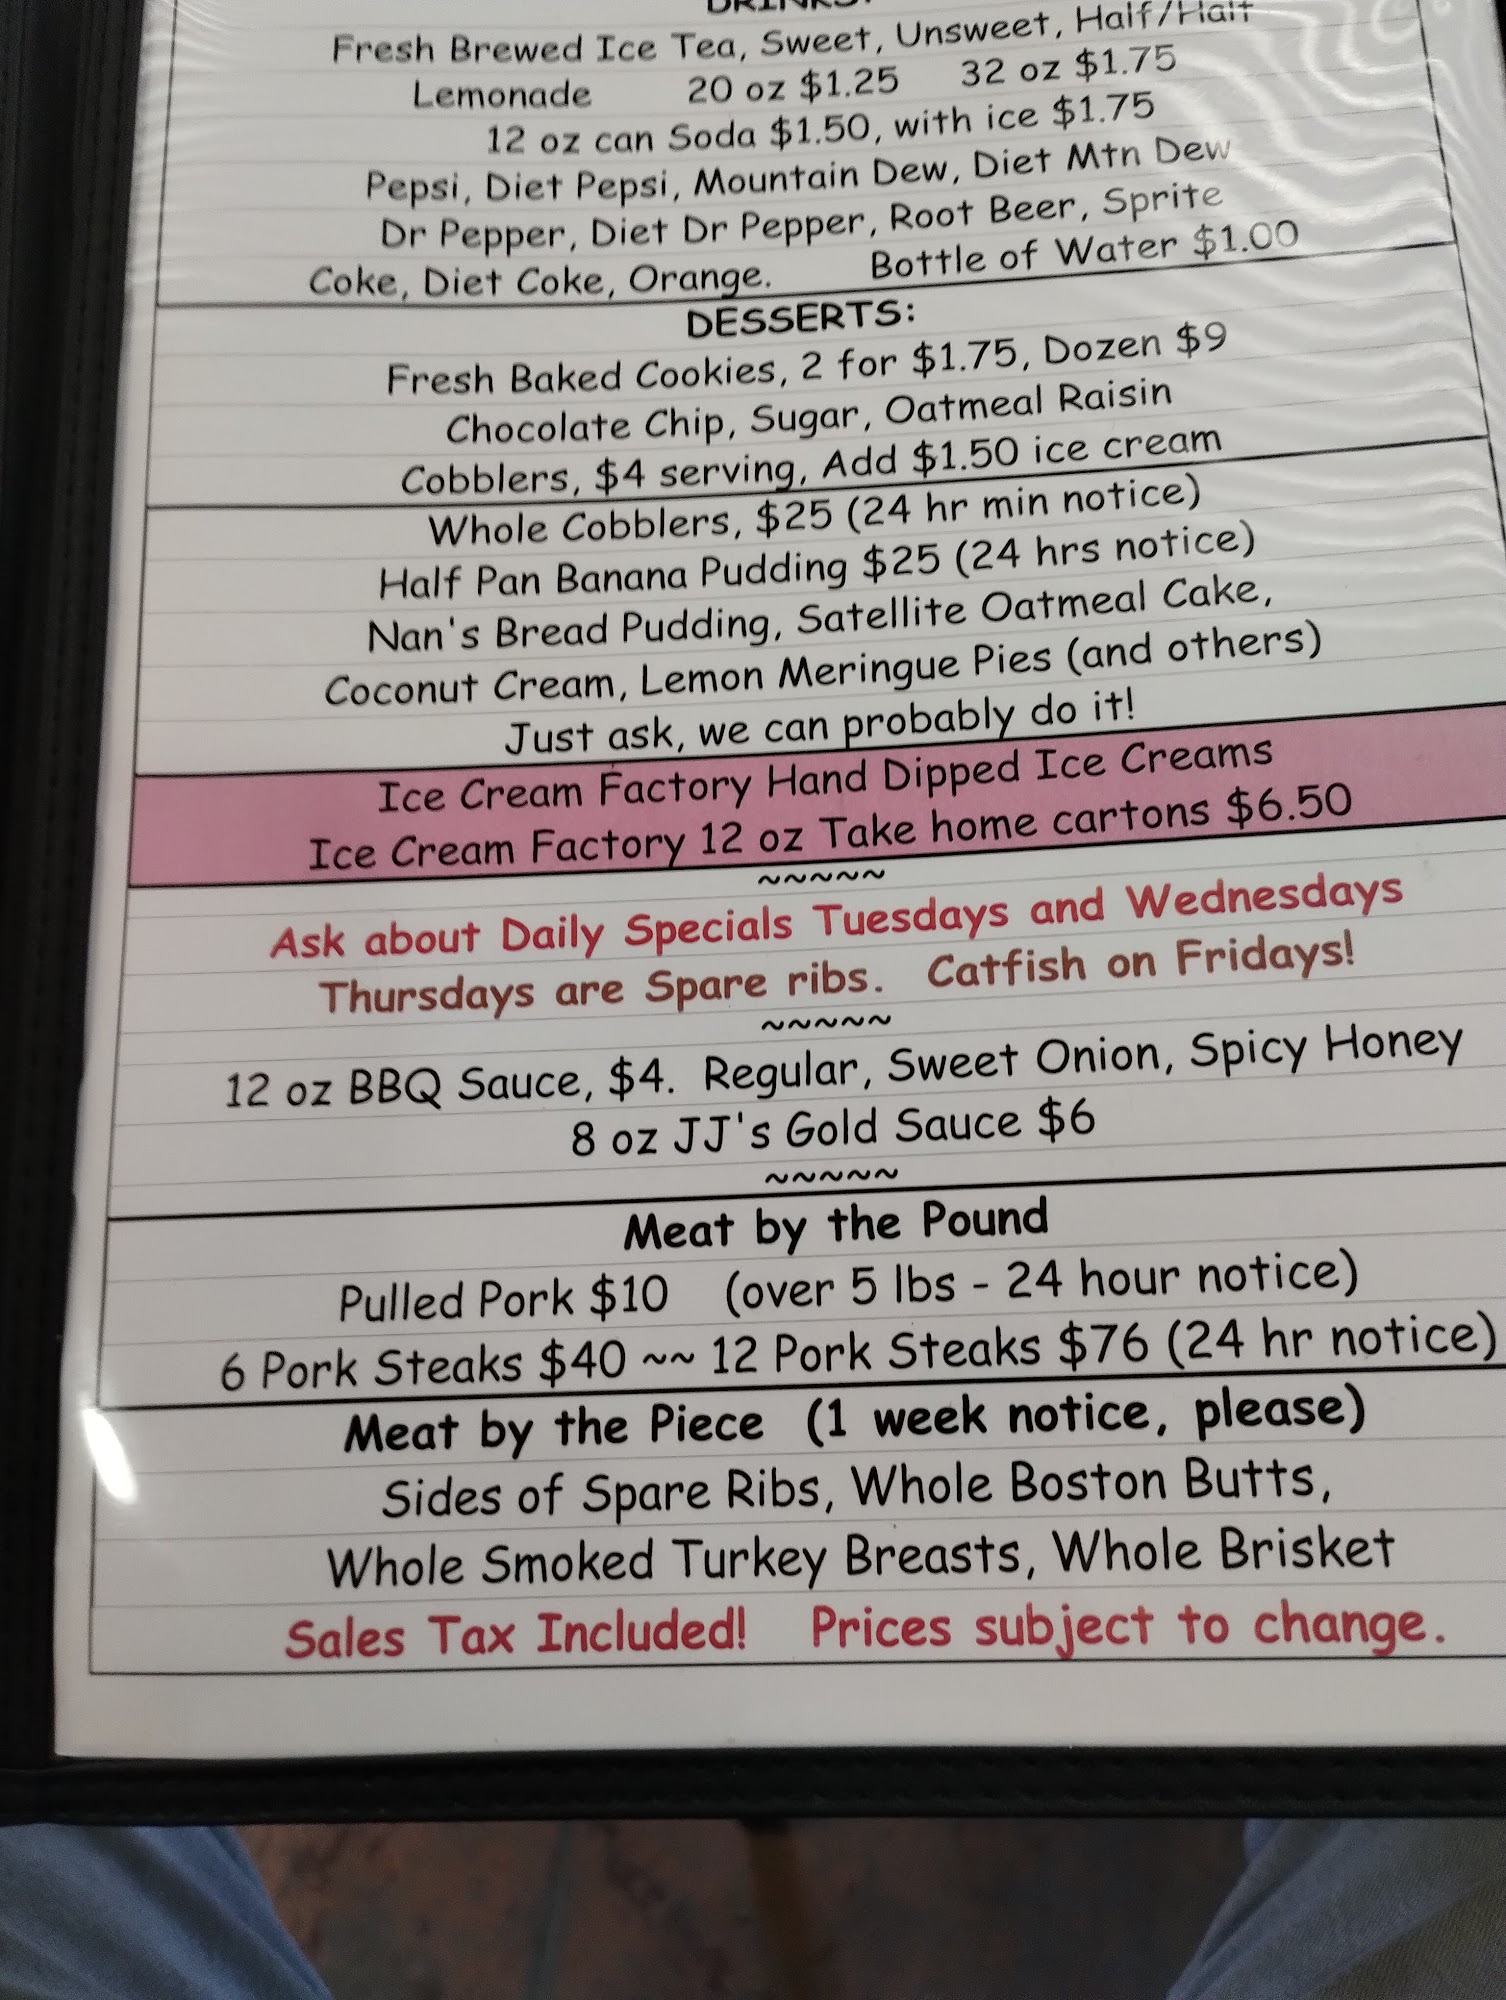 DRINKS:
Fresh Brewed Ice Tea, Sweet, Unsweet, Half/Half
Lemonade 20 oz $1.25 32 oz $1.75
12 oz can Soda $1.50, with ice $1.75
Pepsi, Diet Pepsi, Mountain Dew, Diet Mtn Dew
Dr Pepper, Diet Dr Pepper, Root Beer, Sprite
Coke, Diet Coke, Orange. Bottle of Water $1.00
DESSERTS:
Fresh Baked Cookies, 2 for $1.75, Dozen $9
Chocolate Chip, Sugar, Oatmeal Raisin
Cobblers, $4 serving, Add $1.50 ice cream
Whole Cobblers, $25 (24 hr min notice)
Half Pan Banana Pudding $25 (24 hrs notice)
Nan's Bread Pudding, Satellite Oatmeal Cake,
Coconut Cream, Lemon Meringue Pies (and others)
Just ask, we can probably do it!
Ice Cream Factory Hand Dipped Ice Creams
Ice Cream Factory 12 oz Take home cartons $6.50
~~~~~
Ask about Daily Specials Tuesdays and Wednesdays
Thursdays are Spare ribs. Catfish on Fridays!
~~~~~
12 oz BBQ Sauce, $4. Regular, Sweet Onion, Spicy Honey
8 oz JJ's Gold Sauce $6
~~~~~
Meat by the Pound
Pulled Pork $10 (over 5 lbs - 24 hour notice)
6 Pork Steaks $40 ~~ 12 Pork Steaks $76 (24 hr notice)
Meat by the Piece (1 week notice, please)
Sides of Spare Ribs, Whole Boston Butts,
Whole Smoked Turkey Breasts, Whole Brisket
Sales Tax Included! Prices subject to change.